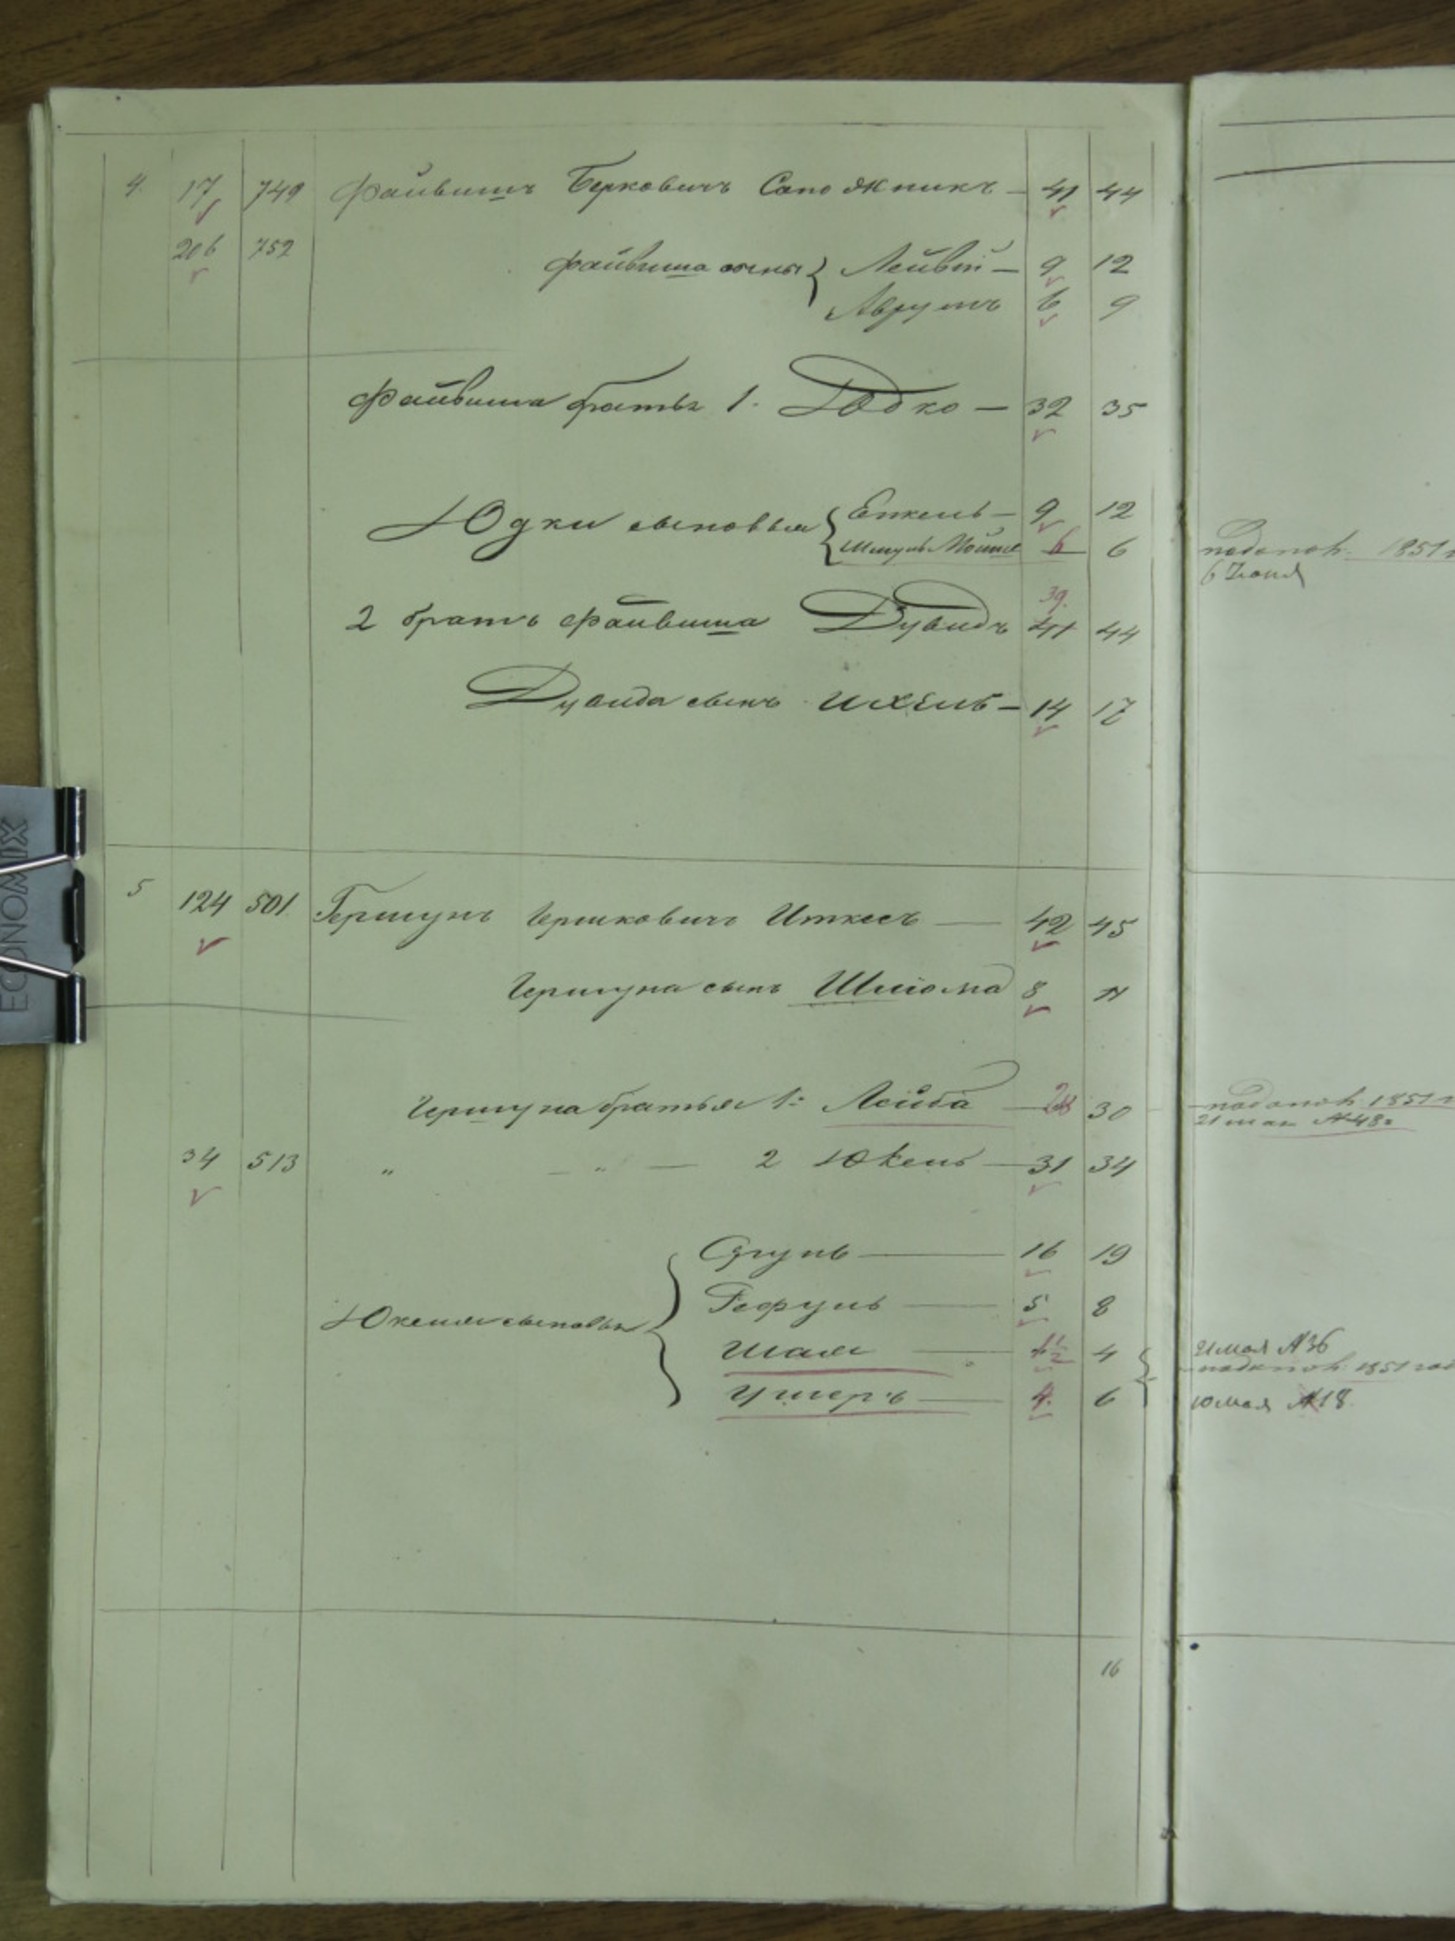 4. 17 749 Файвишъ Берковичъ Сапожникъ — 41 44
206 752 Файвиша сыны { Лейвй — 9 12
Аврумъ 6 9
Файвиша братья 1. Юдко — 32 35
Юдки сыновья { Енкель — 9 12
Шмуль Мойше 6 6
подопол. 1851
6 Июня
39.
2 братъ Файвиша Дувидъ 41 44
Дувида сынъ Ихель — 14 17
5 124 501. Гершунъ Гершковичъ Иткесъ — 42 45
Гершуна сынъ Шлиома 8 11
Гершуна братья 1: Лейба — 28 30
подопол. 1851
21 мая №48.
34 513 „ — „ — 2 Юкель — 31 34
Сруль — 16 19
Рефуль — 5 8
Юкеля сыновья {
Шая — 1½ 4
21 мая №36
подопол. 1851 год
Ушеръ — 4. 6
10 мая №18.
16
ECONOMIX